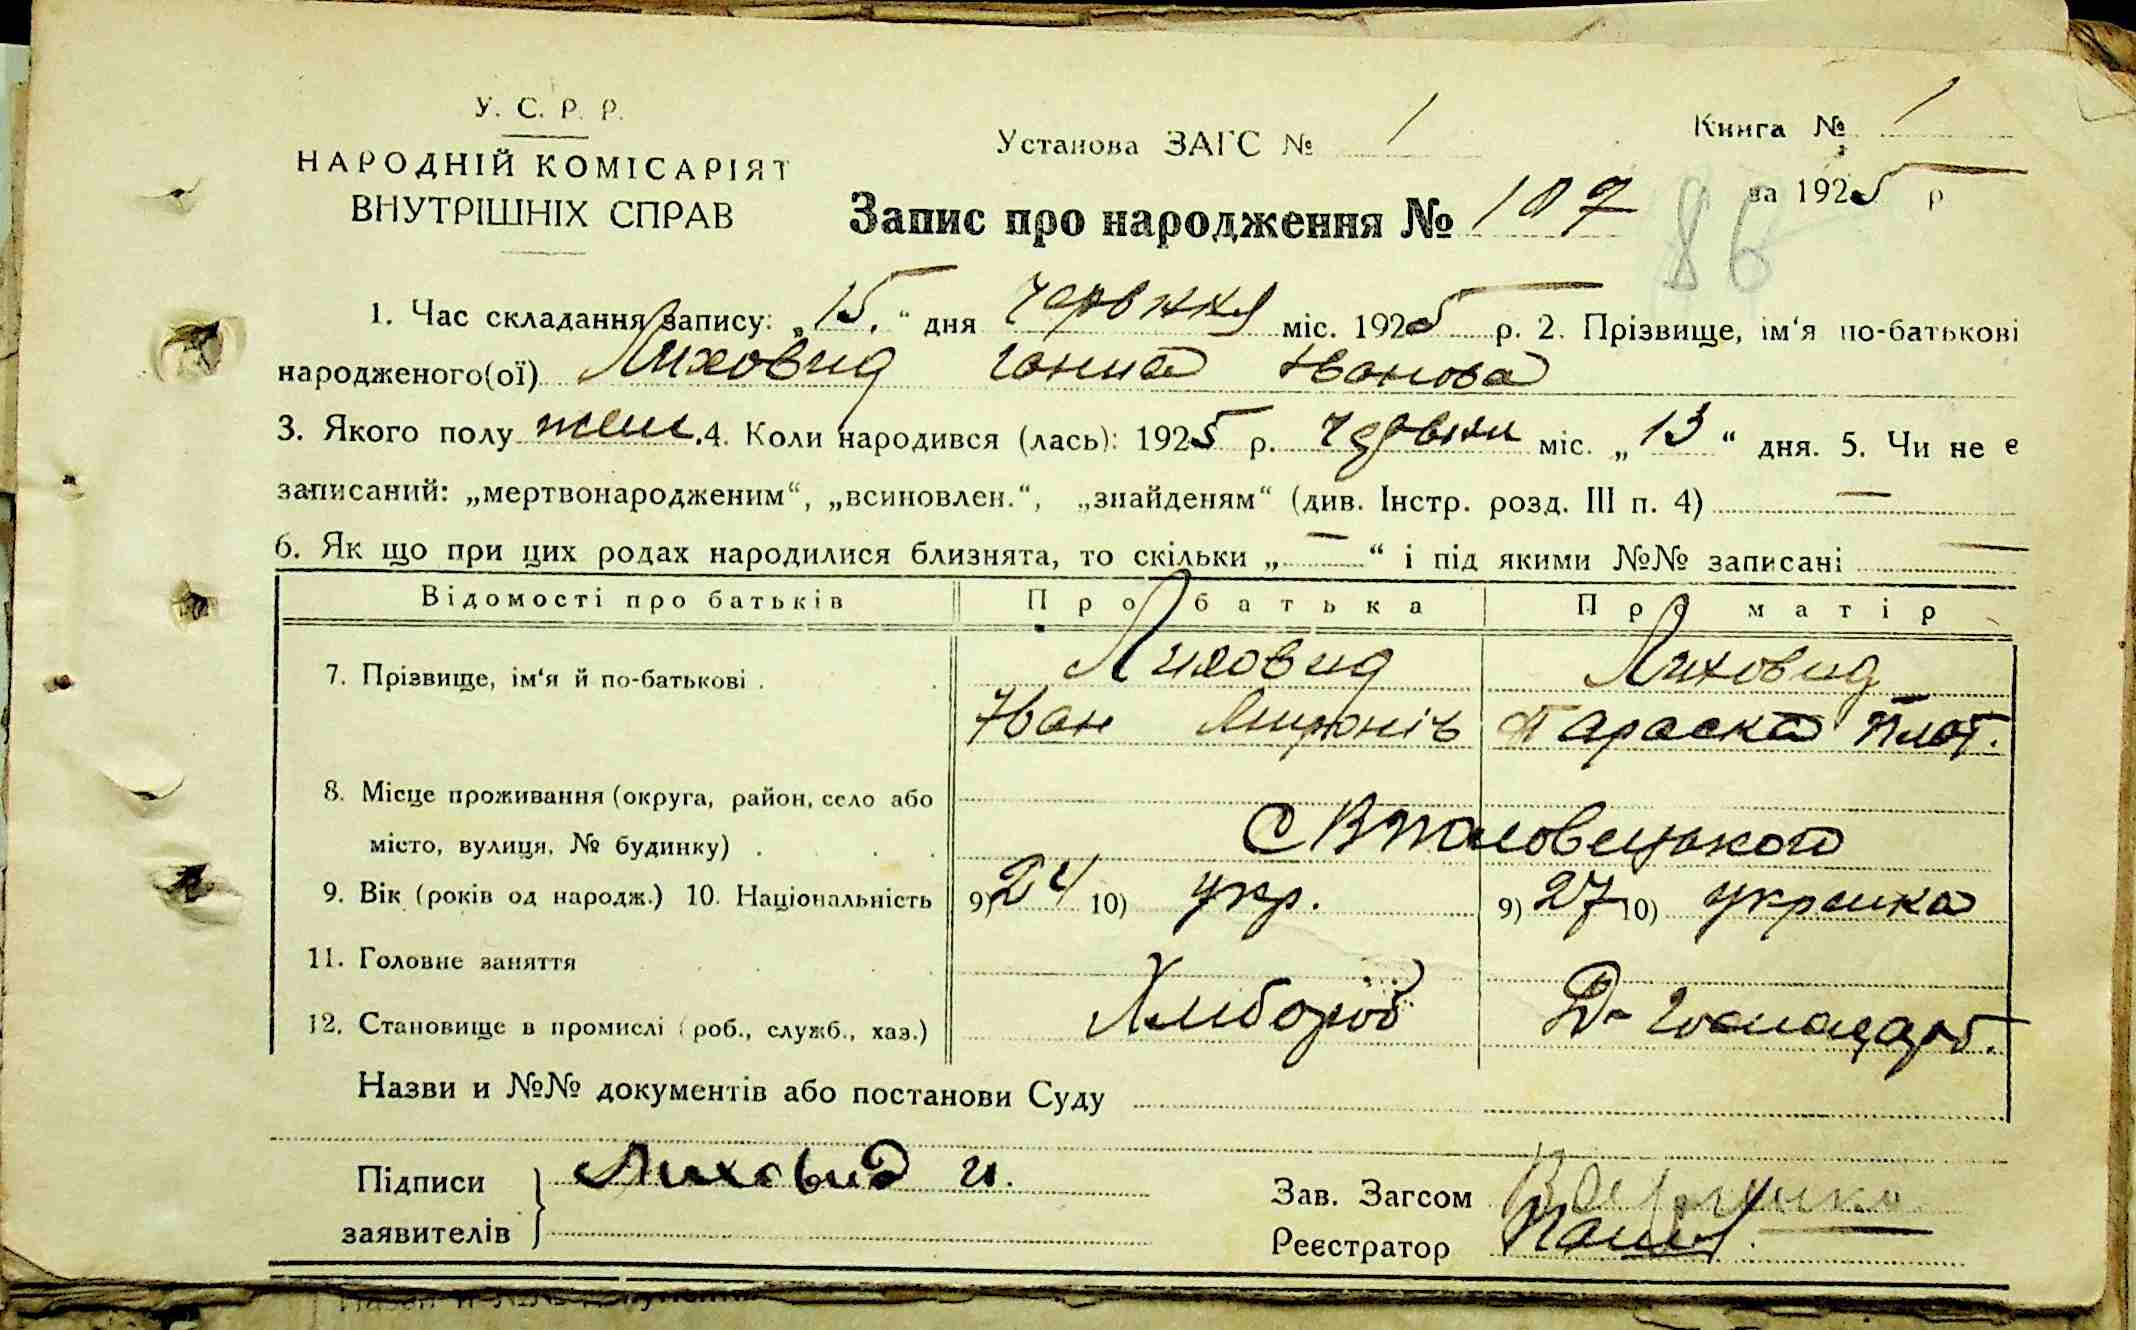 У. С. Р. Р.
НАРОДНІЙ КОМІСАРІЯТ
ВНУТРІШНІХ СПРАВ
Установа ЗАГС № 1
Книга № 1
за 1925 р
Запис про народження № 107
86
1. Час складання запису: „15.“ дня червня міс. 1925 р. 2. Прізвище, ім‘я по-батькові
народженого(ої) Лиховид Ганна Іванова
3. Якого полу жен. 4. Коли народився (лась): 1925 р. червня міс. „13“ дня. 5. Чи не є
записаний: „мертвонародженим“, „всиновлен.“, „знайденям“ (див. Інстр. розд. III п. 4) —
6. Як що при цих родах народилися близнята, то скільки „—“ і під якими №№ записані —
Відомості про батьків Про батька Про матір
7. Прізвище, ім‘я й по-батькові . Лиховид Лиховид
Іван Параска Плат.
8. Місце проживання (округа, район, село або
місто, вулиця, № будинку) . С
9. Вік (років од народж.) 10. Національність 9) 24 10) укр. 9) 27 10) україн­ка
11. Головне заняття
12. Становище в промислі (роб., служб., хаз.) Хлибороб Д-господарб.
Назви и №№ документів або постанови Суду
Підписи заявителів Лиховид И.
Зав. Загсом
Реєстратор